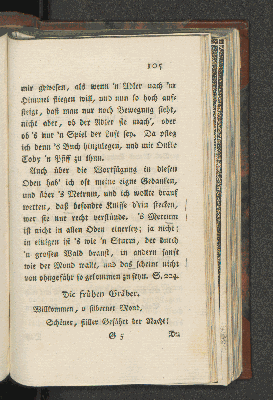 105
mir gewesen, als wenn 'n Adler nach 'm
Himmel fliegen will, und nun so hoch auf-
steigt, daß man nur noch Bewegung sieht,
nicht aber, ob der Adler sie mach', oder
ob's nur 'n Spiel der Luft sey. Da pfleg
ich denn 's Buch hinzulegen, und mit Onkle
Toby 'n Pfiff zu thun.
Auch über die Wortfügung in diesen
Oden hab' ich oft meine eigne Gedanken,
und über 's Metrum, und ich wollte drauf
wetten, daß besondre Kniffe d'rin stecken,
wer sie nur recht verstünde. 's Metrum
ist nicht in allen Oden einerley; ja nicht;
in einigen ist 's wie 'n Sturm, der durch
'n großen Wald braust, in andern sanft
wie der Mond wallt, und das scheint nicht
von ohngefähr so gekommen zu seyn. S. 224.
Die frühen Gräber.
Willkommen, o silberner Mond,
Schöner, stiller Gefährt der Nacht!
G 5
Du